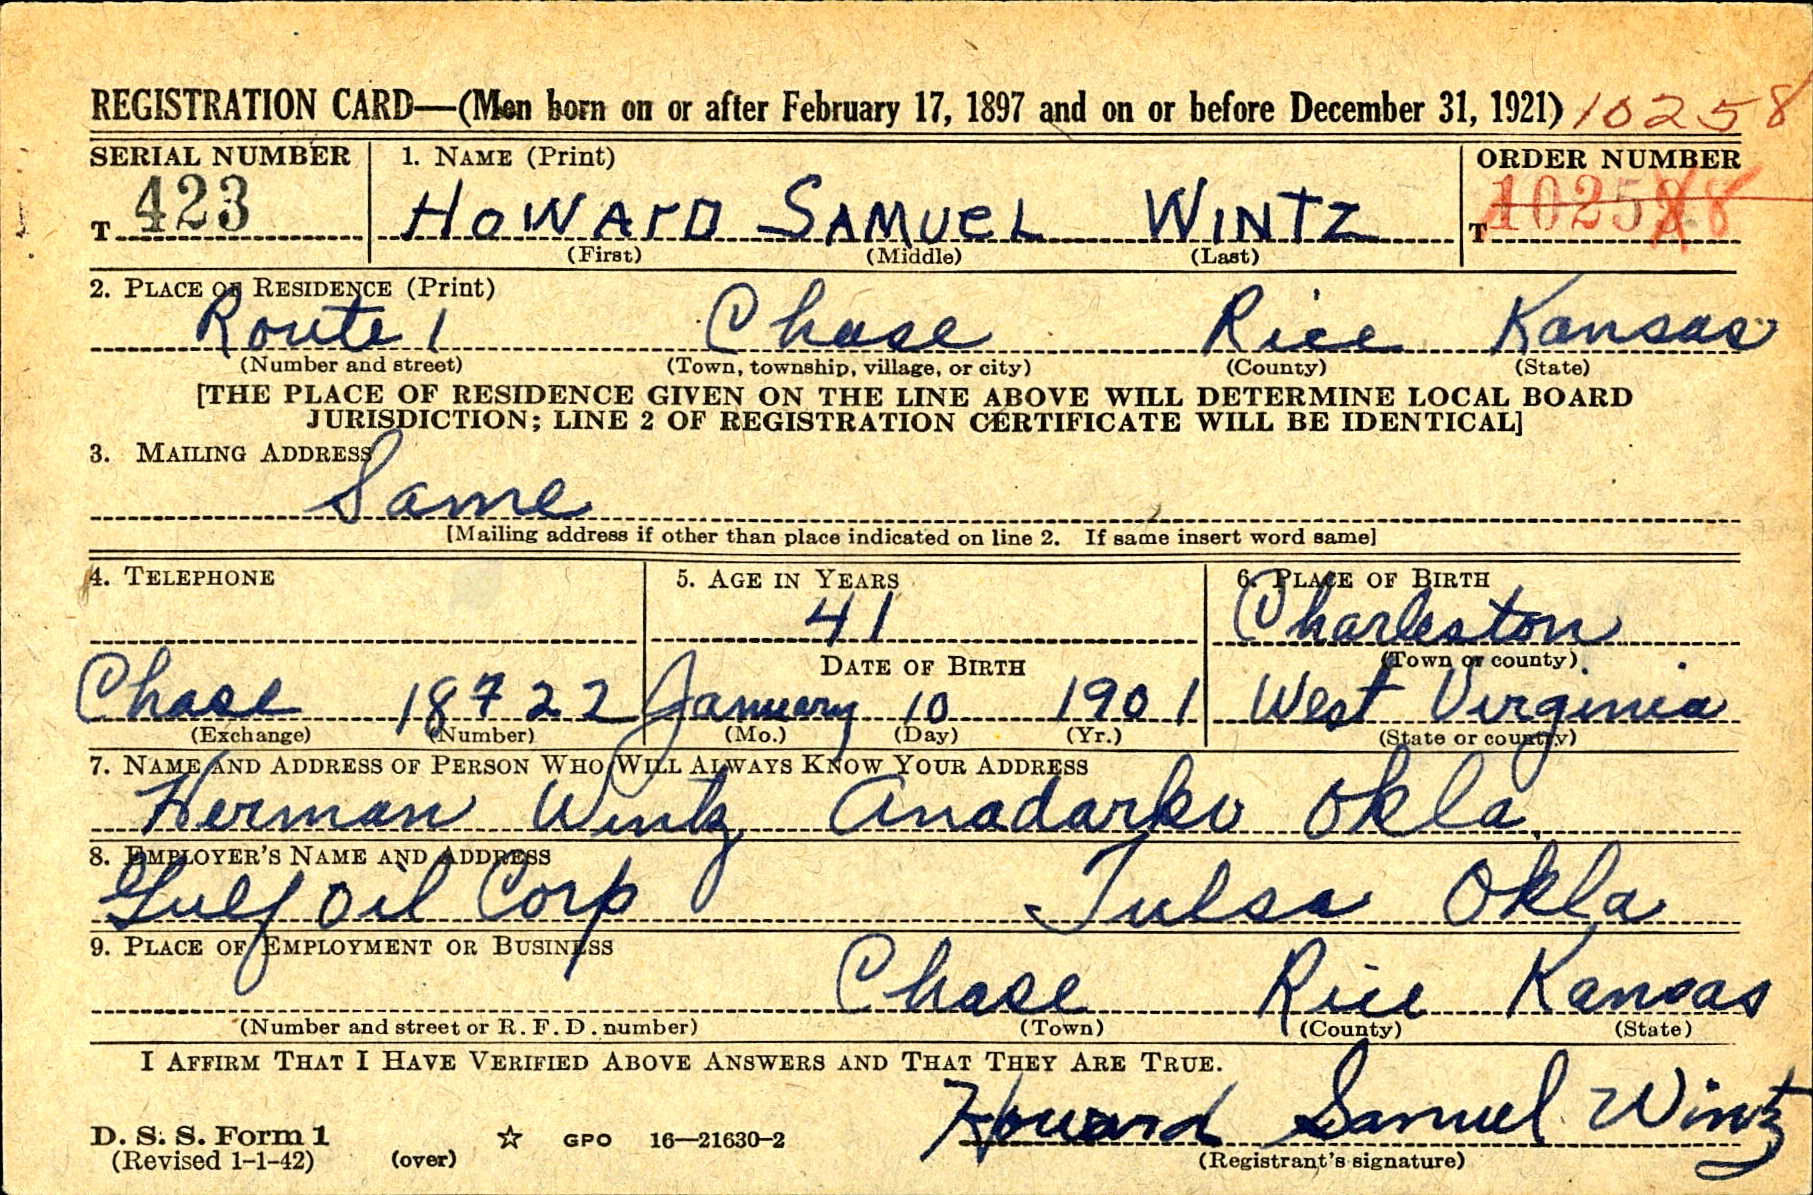 REGISTRATION CARD—(Men born on or after February 17, 1897 and on or before December 31, 1921) 10258
SERIAL NUMBER 1. NAME (Print) ORDER NUMBER
T 423 HOWARD SAMUEL WINTZ T 10258
(First) (Middle) (Last)
2. PLACE OF RESIDENCE (Print)
Route 1 Chase Rice Kansas
(Number and street) (Town, township, village, or city) (County) (State)
[THE PLACE OF RESIDENCE GIVEN ON THE LINE ABOVE WILL DETERMINE LOCAL BOARD
JURISDICTION; LINE 2 OF REGISTRATION CERTIFICATE WILL BE IDENTICAL]
3. MAILING ADDRESS
Same
[Mailing address if other than place indicated on line 2. If same insert word same]
4. TELEPHONE 5. AGE IN YEARS 6. PLACE OF BIRTH
41 Charleston
DATE OF BIRTH (Town or county)
Chase 18722 January 10 1901 West Virginia
(Exchange) (Number) (Mo.) (Day) (Yr.) (State or country)
7. NAME AND ADDRESS OF PERSON WHO WILL ALWAYS KNOW YOUR ADDRESS
Herman Wintz Anadarko Okla.
8. EMPLOYER'S NAME AND ADDRESS
Gulf Oil Corp Tulsa Okla
9. PLACE OF EMPLOYMENT OR BUSINESS
Chase Rice Kansas
(Number and street or R. F. D. number) (Town) (County) (State)
I AFFIRM THAT I HAVE VERIFIED ABOVE ANSWERS AND THAT THEY ARE TRUE.
Howard Samuel Wintz
D. S. S. Form 1 ☆ GPO 16—21630-2
(Revised 1-1-42) (over) (Registrant's signature)